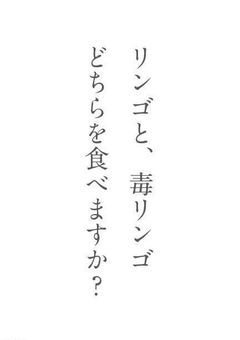 リンゴと、毒リンゴ
どちらを食べますか？